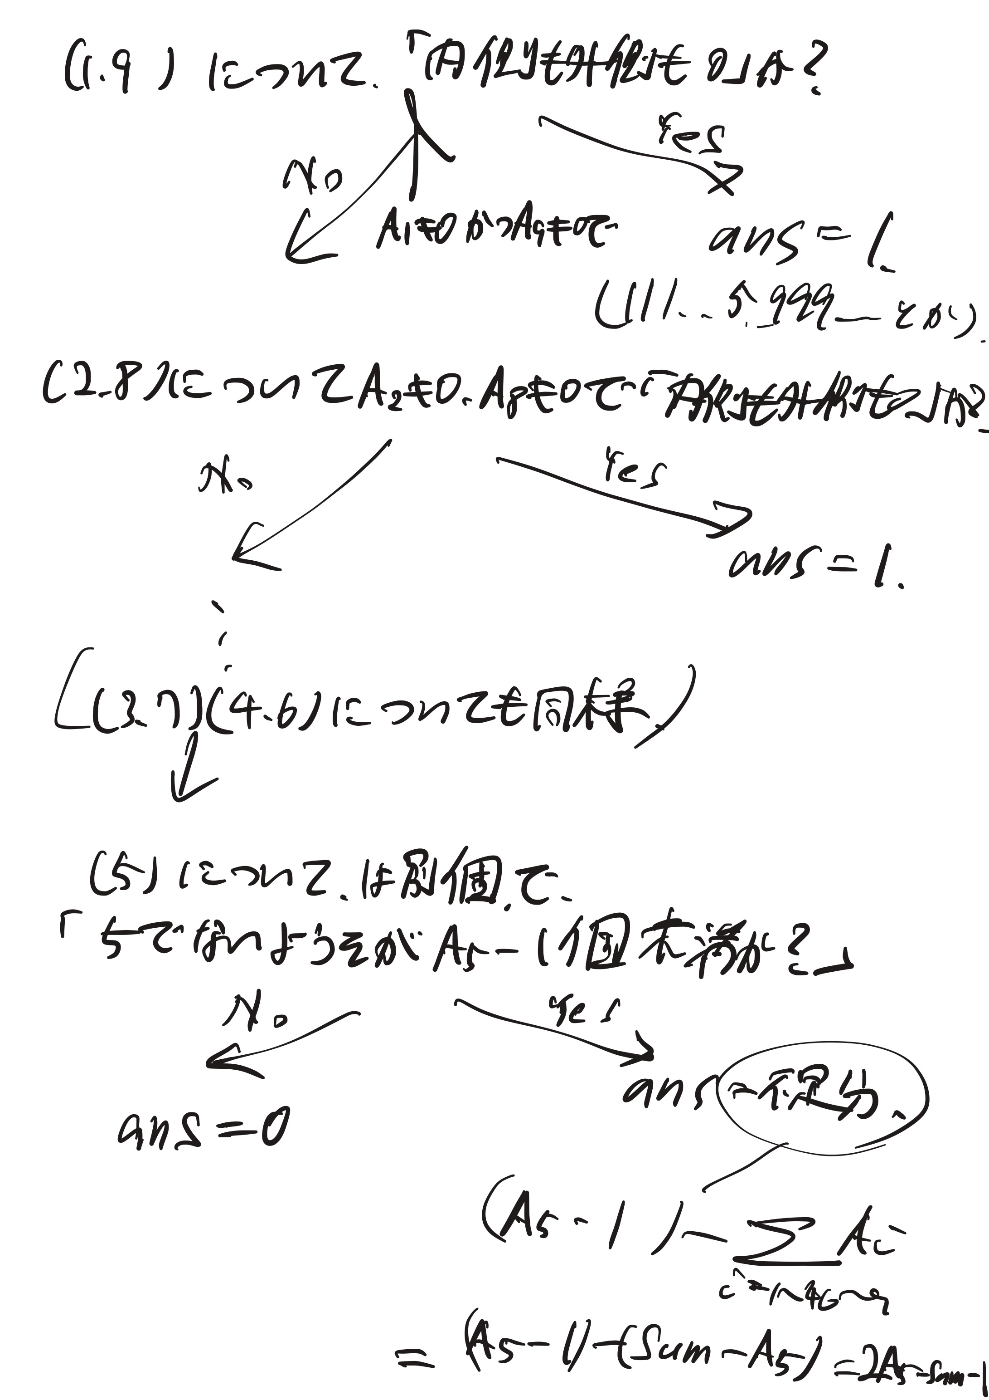 (1.9)について、「内側も外側も0」か?
No
Yes
A₁も0かつA₉も0で
ans=1.
(111...5.999—とか).
(2.8)についてA₂も0.A₈も0で「内側も外側も0」か?
No
Yes
ans=1.
((3.7)(4.6)についても同様)
(5)について.は別個.で、
「5でないようそがA₅-1個未満か?」
No
Yes
ans=0
ans=不足分.
(A₅-1)-∑Ai
i=1~4,6~9
=(A₅-1)-(Sum-A₅)=2A₅-Sum-1